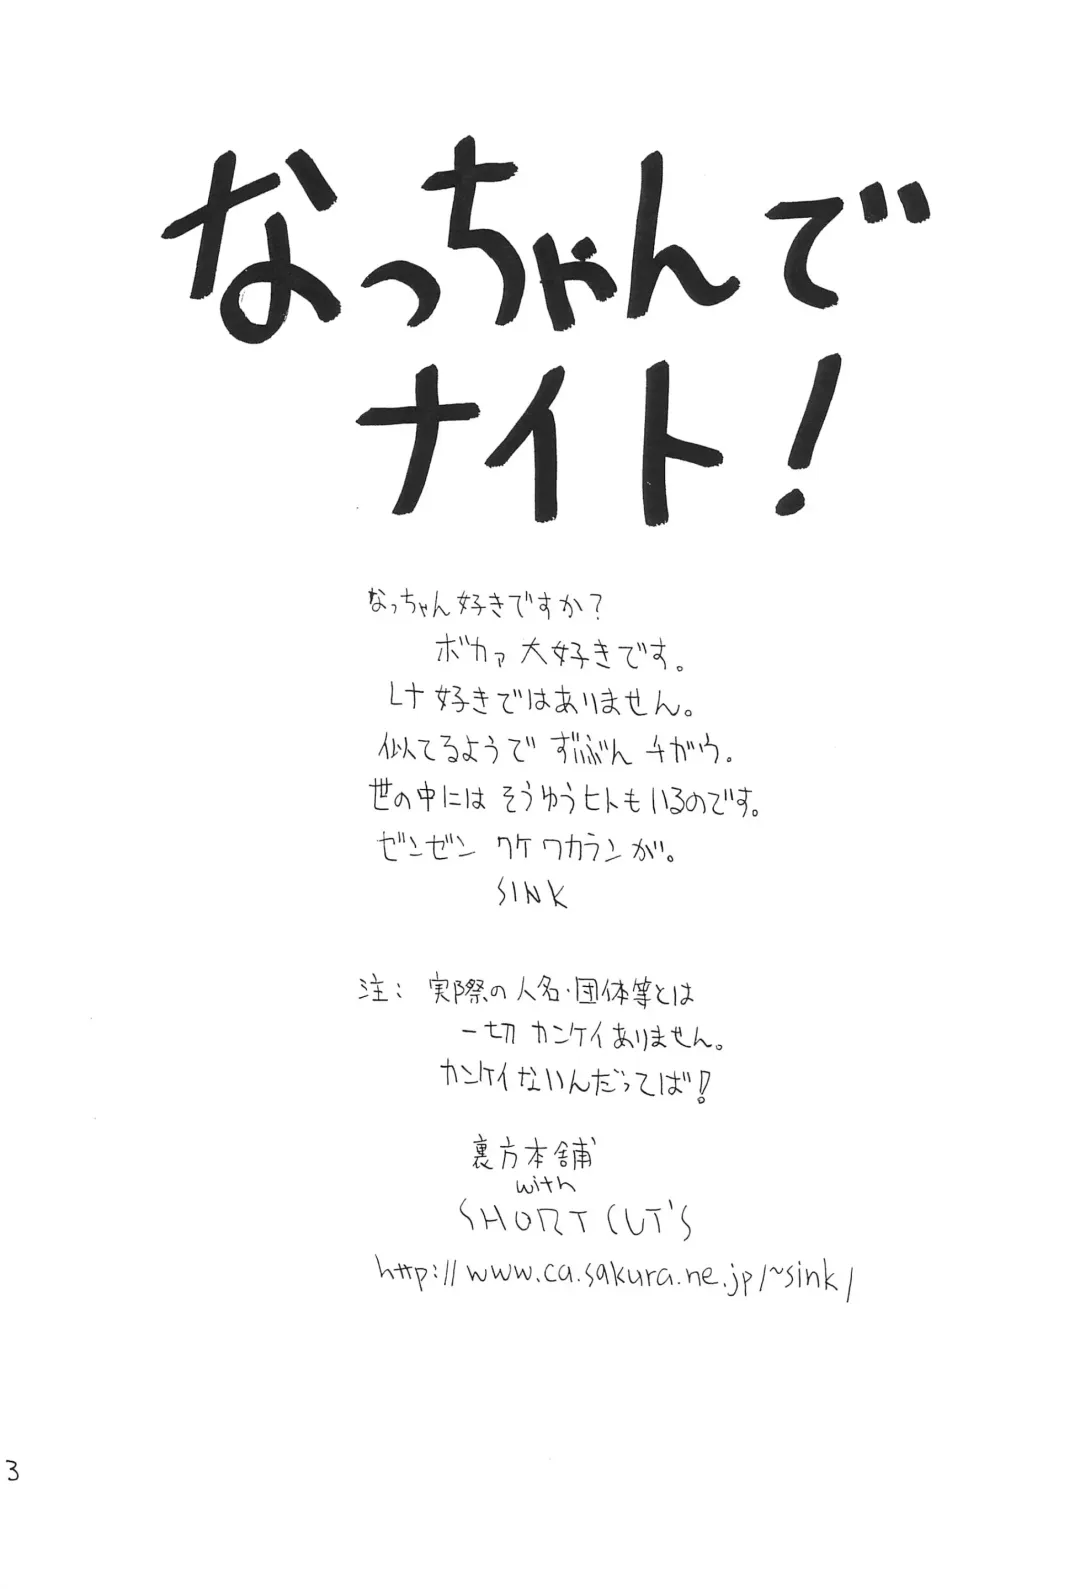 なっちゃんで
ナイト!
なっちゃん好きですか?
ボカァ 大好きです。
Lナ 好きではありません。
似てるようで ずいぶん チガウ。
世の中には そうゆうヒトもいるのです。
ゼンゼン ワケ ワカランが。
SINK
注: 実際の人名・団体等とは
一切 カンケイありません。
カンケイないんだってば!
裏方本舗
with
SHORT CUT'S
http://www.ca.sakura.ne.jp/~sink/
3